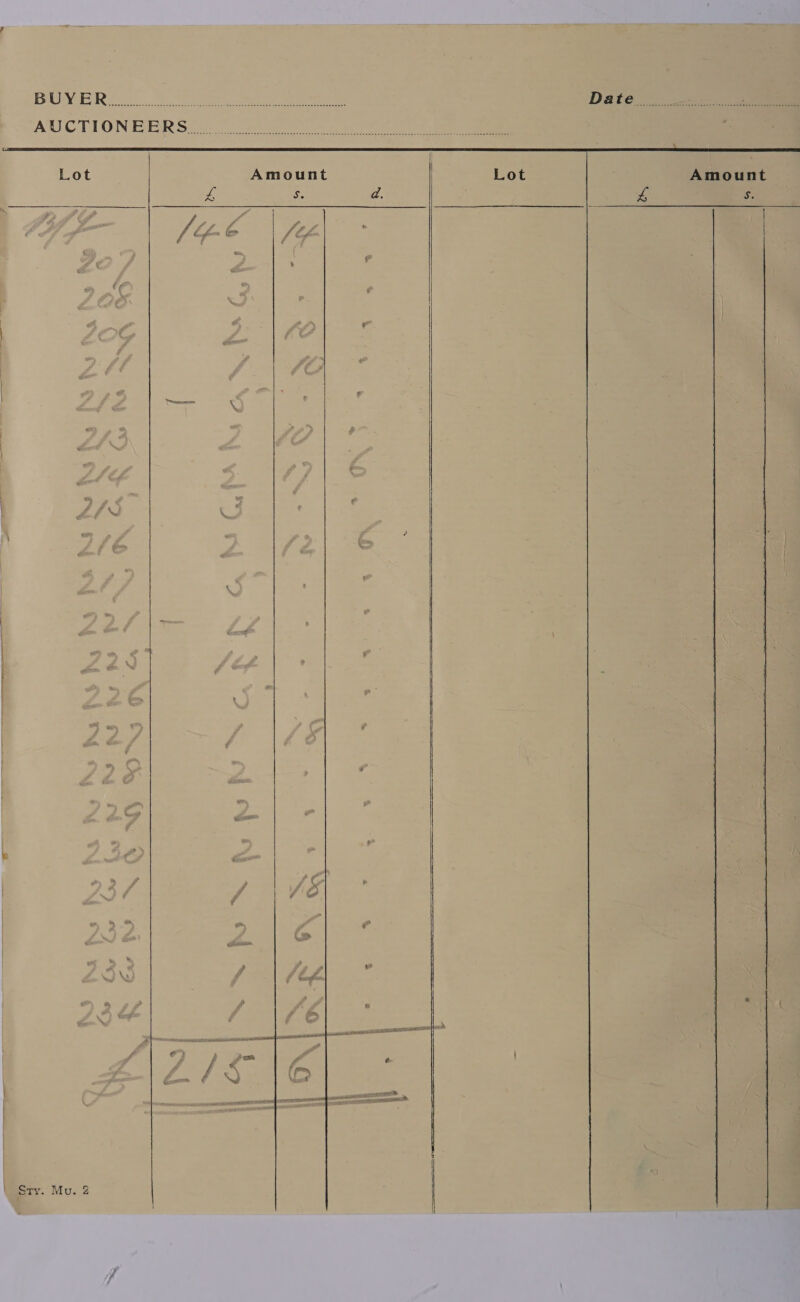 BUYER Date
AUCTIONEERS
Lot Amount Lot Amount
£ s. d. £ s.
B/F 146 14 -
207 2 - -
208 3 - -
209 2 10 -
211 1 10 -
212 — 5 - -
213 2 10 -
214 2 17 6
215 3 - -
216 2 12 6
217 5 - -
221 — 4 - -
225 14 - -
226 5 - -
227 1 18 -
228 2 - -
229 2 - -
230 2 - -
231 1 18 -
232 2 6 -
233 1 14 -
234 1 16 -
£ 215 6 -
Sty. Mu. 2